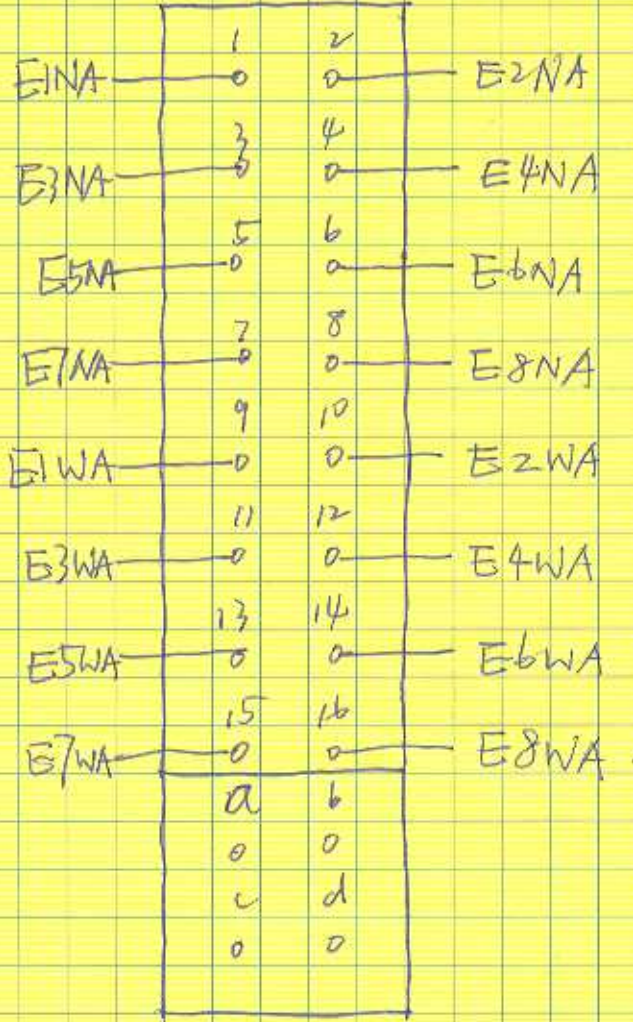 1 2
E1NA E2NA
3 4
E3NA E4NA
5 6
E5NA E6NA
7 8
E7NA E8NA
9 10
E1WA E2WA
11 12
E3WA E4WA
13 14
E5WA E6WA
15 16
E7WA E8WA
a b
c d